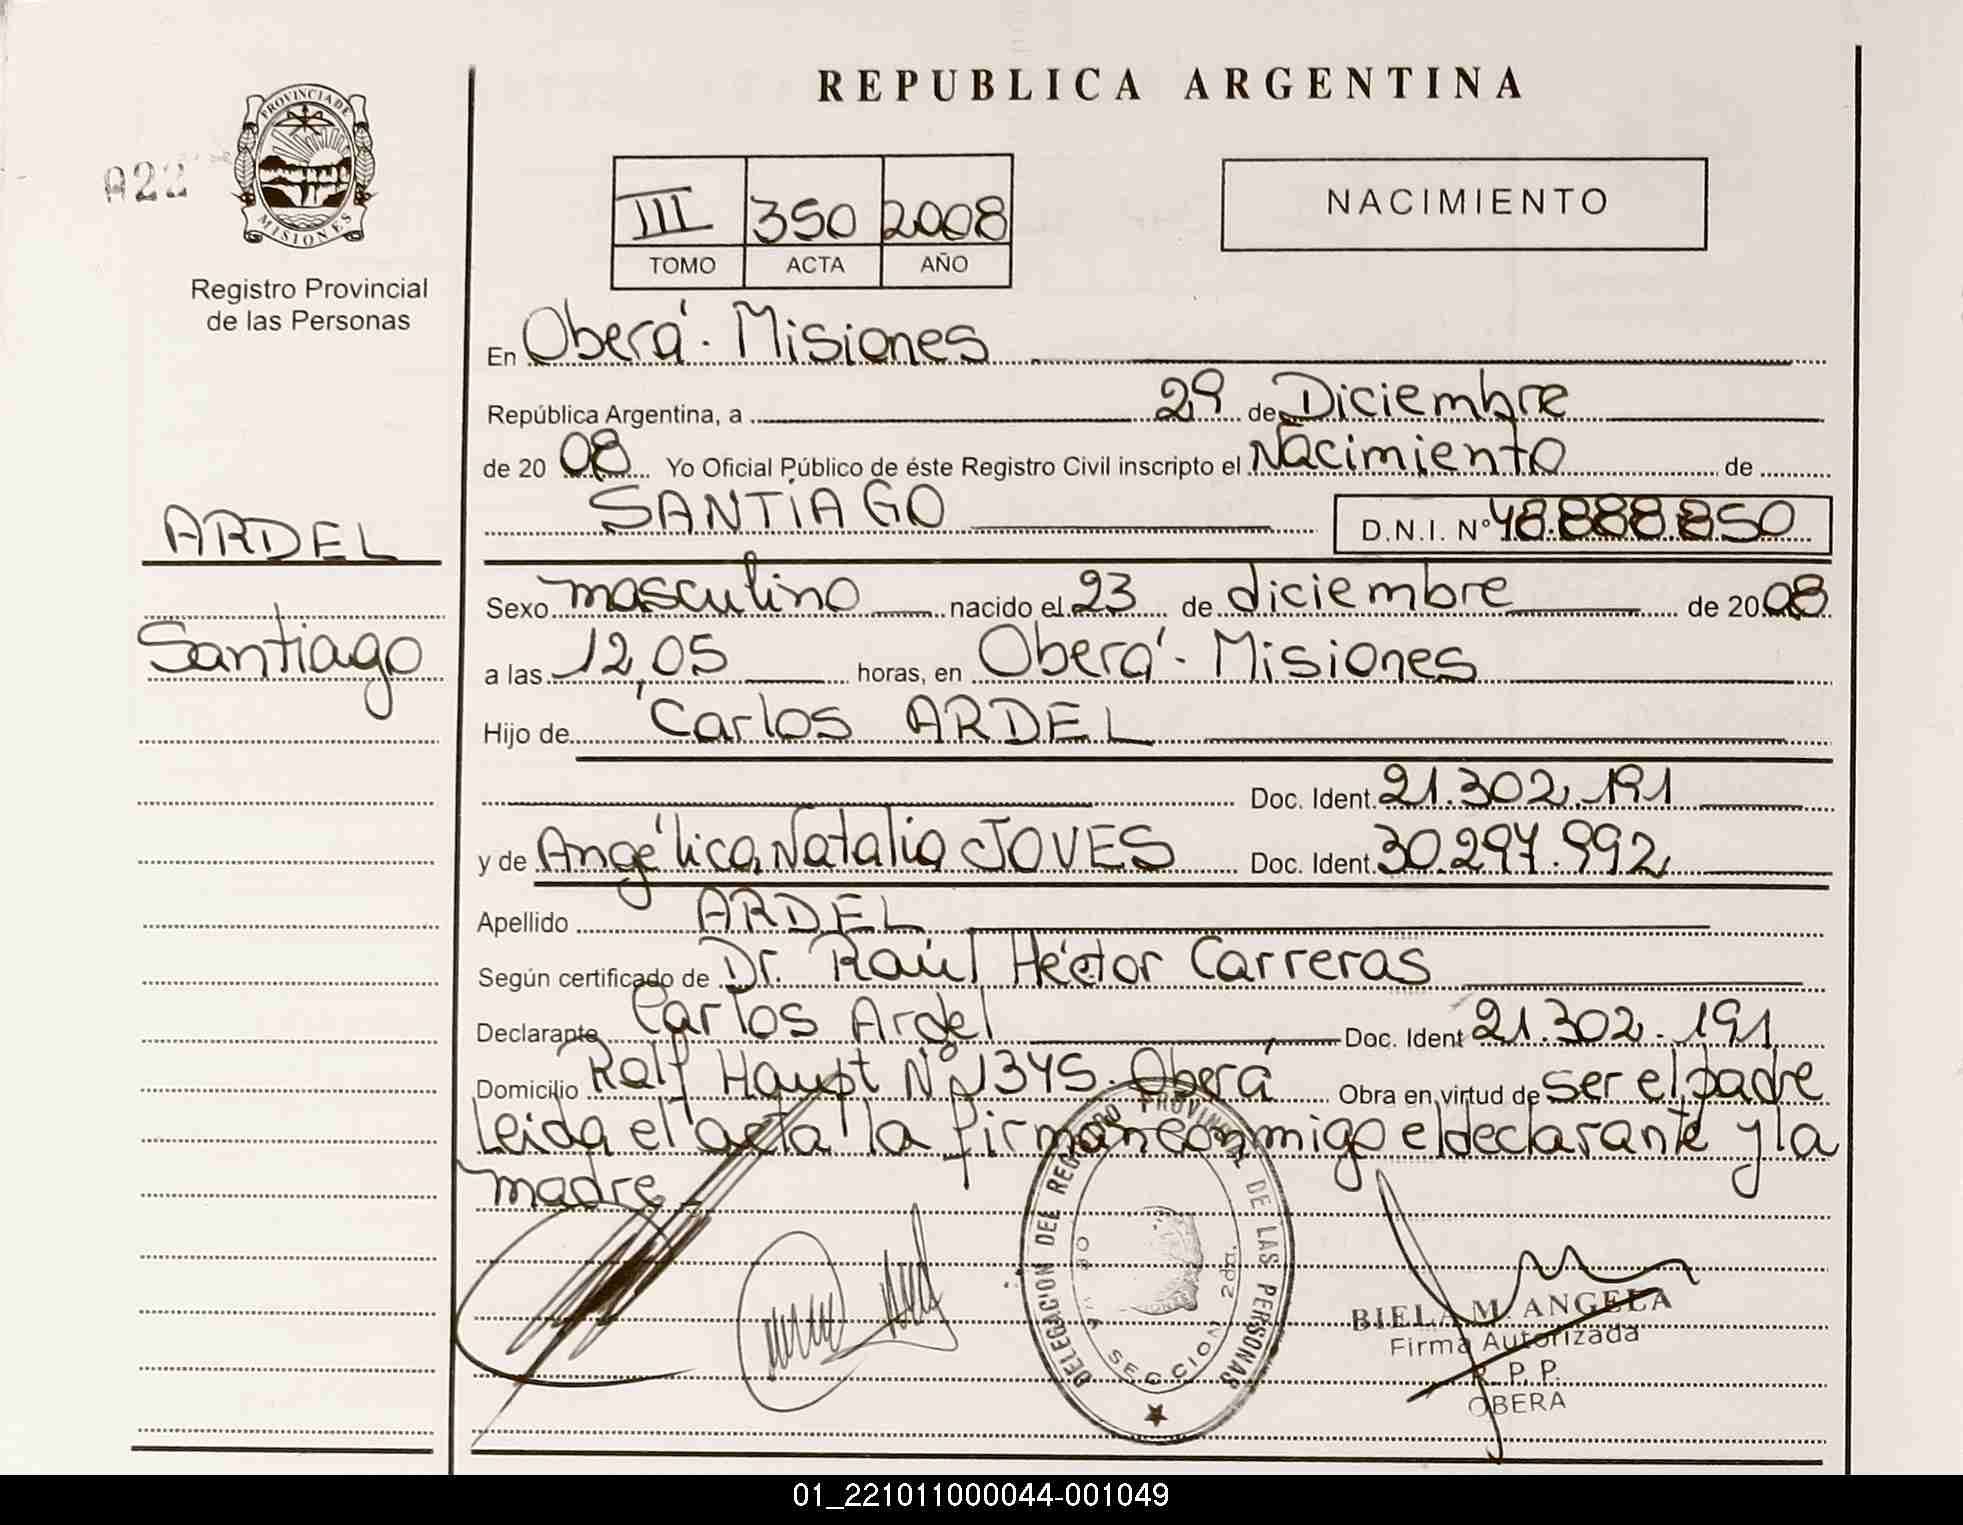 REPUBLICA ARGENTINA
PROVINCIA DE
MISIONES
022
Registro Provincial
de las Personas
III 350 2008
TOMO ACTA AÑO
NACIMIENTO
En Oberá - Misiones
República Argentina, a 29 de Diciembre
de 2008 Yo Oficial Público de éste Registro Civil inscripto el Nacimiento de
SANTIAGO D.N.I. Nº 48.888.850
ARDEL
Santiago
Sexo masculino nacido el 23 de diciembre de 2008
a las 12,05 horas, en Oberá - Misiones
Hijo de Carlos ARDEL
Doc. Ident. 21.302.191
y de Angélica Natalia JOVES Doc. Ident. 30.297.992
Apellido ARDEL
Según certificado de Dr. Raúl Héctor Carreras
Declarante Carlos Ardel Doc. Ident 21.302.191
Domicilio Ralf Haupt Nº 1345. Oberá Obra en virtud de ser el padre
Leida el acta la firman conmigo el declarante y la
madre
DELEGACION DEL REGISTRO PROVINCIAL DE LAS PERSONAS
SECCION 2da.
BIELA M. ANGELA
Firma Autorizada
R. P. P.
OBERA
01_221011000044-001049